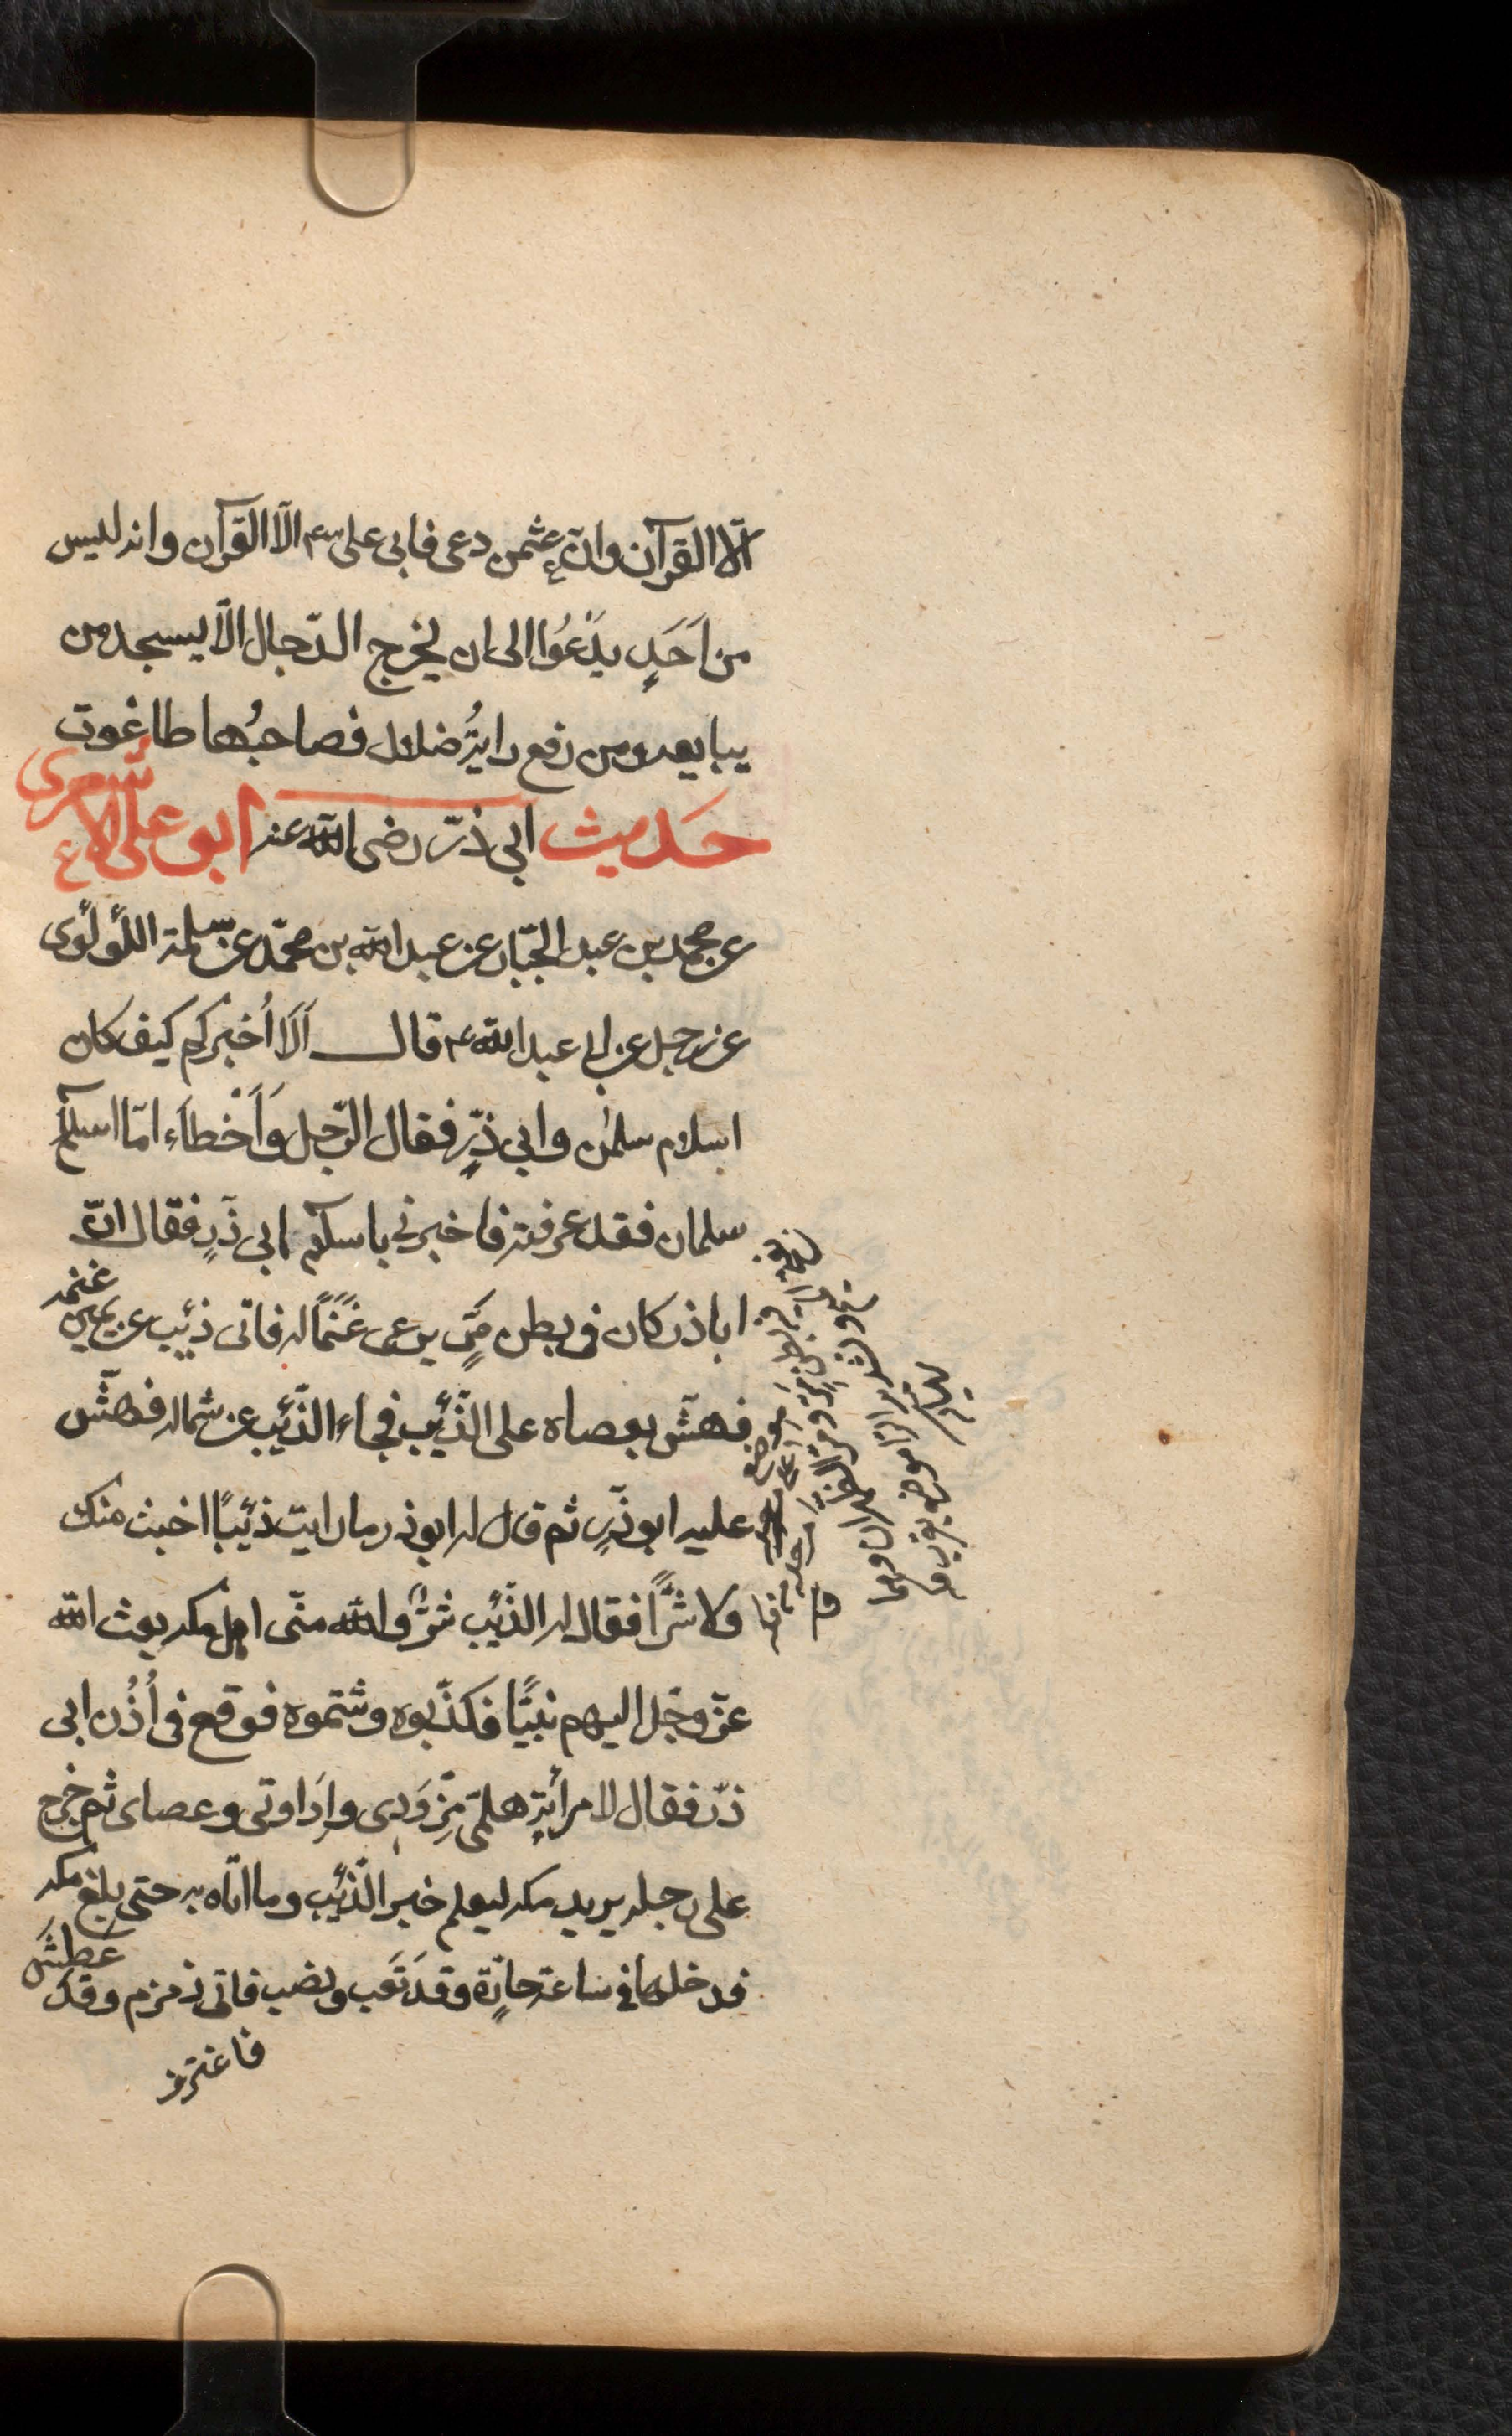 الّا القرآن وانّ عثمن دعى فابى على ع م الّا القرآن وانه ليس
من اَحَدٍ يَدْعُوا الى ان يخرج الدّجال الّا يسجد من
يبايعه ومن رفع رايةُ ضلال فصاحبُها طاغوت
حديث ابى ذرّ رضى الله عنه ابو على الاشعرى
عن محمد بن عبد الجبّار عن عبد الله بن محمّد عن سلمة اللّؤلُؤى
عن رجل عن ابى عبد الله ع قال اَلَا اُخبركم كيف كان
اسلام سلمٰن وابى ذرٍّ فقال الرّجل وَاَخْطاَء امّا اسلام
سلمان فقد عرفته فاخبرنى باسلام ابى ذرٍ فقال انّ
اباذر كان فى بطن مَرٍّ يرعى غَنَماً له فاتى ذئب عن يمين غنمه
فهشّ بعصاه على الذّئب فجاء الذّئب عن شماله فهشّ
عليه ابو ذّرٍ ثم قال له ابوذر ما رايت ذئباً اخبث منك
ولا شرًّا فقال له الذّئب شرٌّ والله منّى اهل مكه بعث الله
عزّ وجّل اليهم نبيًّا فكذّبوه وشتموه فوقع فى اُذُن ابى
ذرّ فقال لامرأتِهِ هلمّى مِزْوَدِى وإِدَاوتى وعصاى ثم خرج
على رجله يريد مكه ليعلم خبر الذّئب وما اتاه به حتى بلغ مكه
فدخلها فى ساعة حارّة وقد تَعَب ونصب فاتى زمزم وقد عَطِشَ
فاغترف